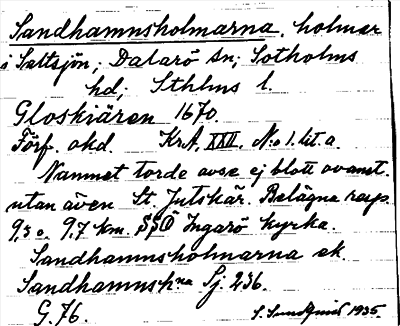 Sandhamnsholmarna, holmar
i Saltsjön; Dalarö sn; Sotholms
hd; Sthlms l.
Gloskiären 1670.
Förf. okd. KrA. XXII. N:o 1. lit. a.
Namnet torde avse ej blott ovannt.
utan även St. Jutskär. Belägna resp.
9,3 o. 9,7 km. SSO Ingarö kyrka.
Sandhamnsholmarna ek.
Sandhamnsh:na Sj. 236.
G. 76. S. Sundqvist 1935.